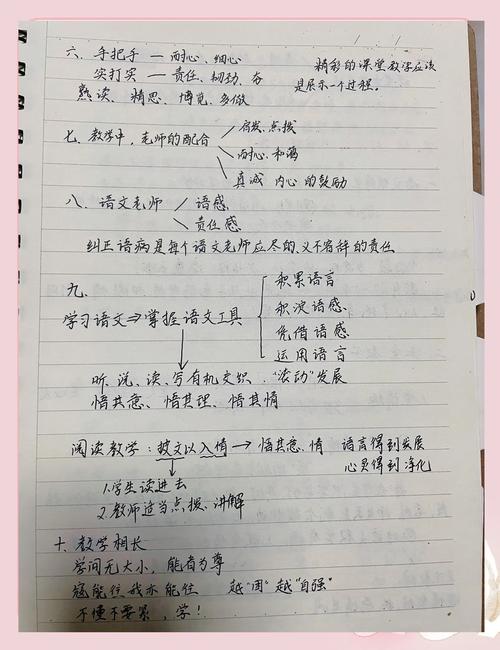 六、手把手 — 耐心、细心
实打实 — 责任、韧劲、夯
熟读、精思、博览、多做
精彩的课堂教学应该
是展示一个过程。
七、教学中,老师的配合
启发、点拨
耐心、和蔼
真诚 内心的鼓励
八、语文老师
语感
责任感
纠正语病是每个语文老师应尽的、义不容辞的责任
九、
学习语文⇒掌握语文工具
积累语言
积淀语感
凭借语感
运用语言
听、说、读、写有机交织,"滚动"发展
悟其意、悟其理、悟其情
阅读教学:披文以入情→悟其意、情 语言得到发展
心灵得到净化
1.学生读进去
2.教师适当点拨、讲解
十、教学相长
学问无大小,能者为尊
寇能往我亦能往 越"困"越"自强"
不懂不要紧,学!